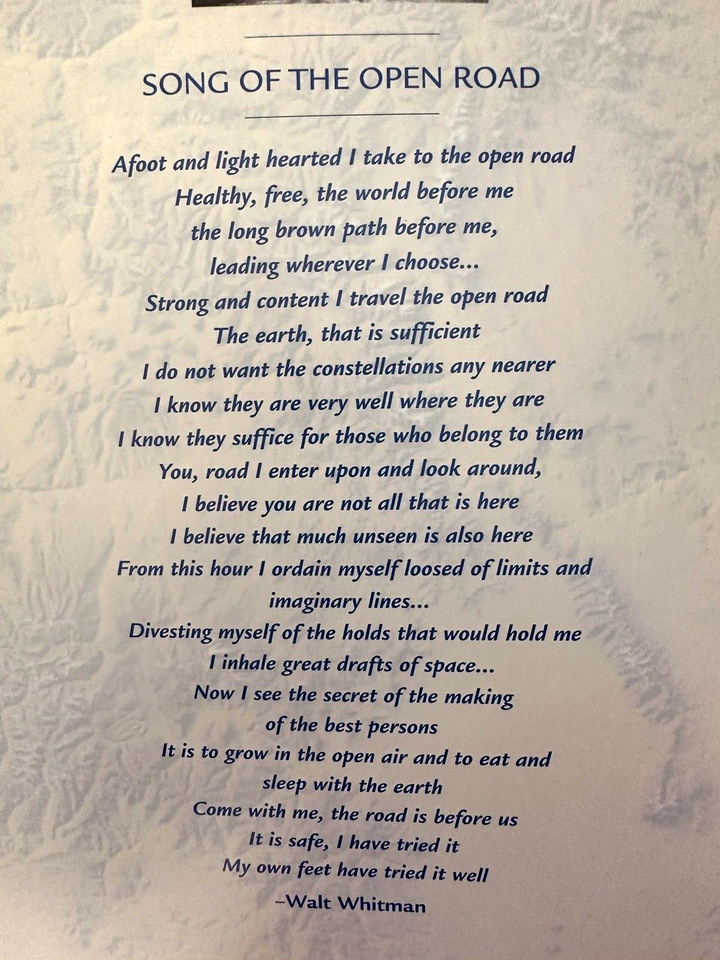 SONG OF THE OPEN ROAD
Afoot and light hearted I take to the open road
Healthy, free, the world before me
the long brown path before me,
leading wherever I choose...
Strong and content I travel the open road
The earth, that is sufficient
I do not want the constellations any nearer
I know they are very well where they are
I know they suffice for those who belong to them
You, road I enter upon and look around,
I believe you are not all that is here
I believe that much unseen is also here
From this hour I ordain myself loosed of limits and
imaginary lines...
Divesting myself of the holds that would hold me
I inhale great drafts of space...
Now I see the secret of the making
of the best persons
It is to grow in the open air and to eat and
sleep with the earth
Come with me, the road is before us
It is safe, I have tried it
My own feet have tried it well
–Walt Whitman